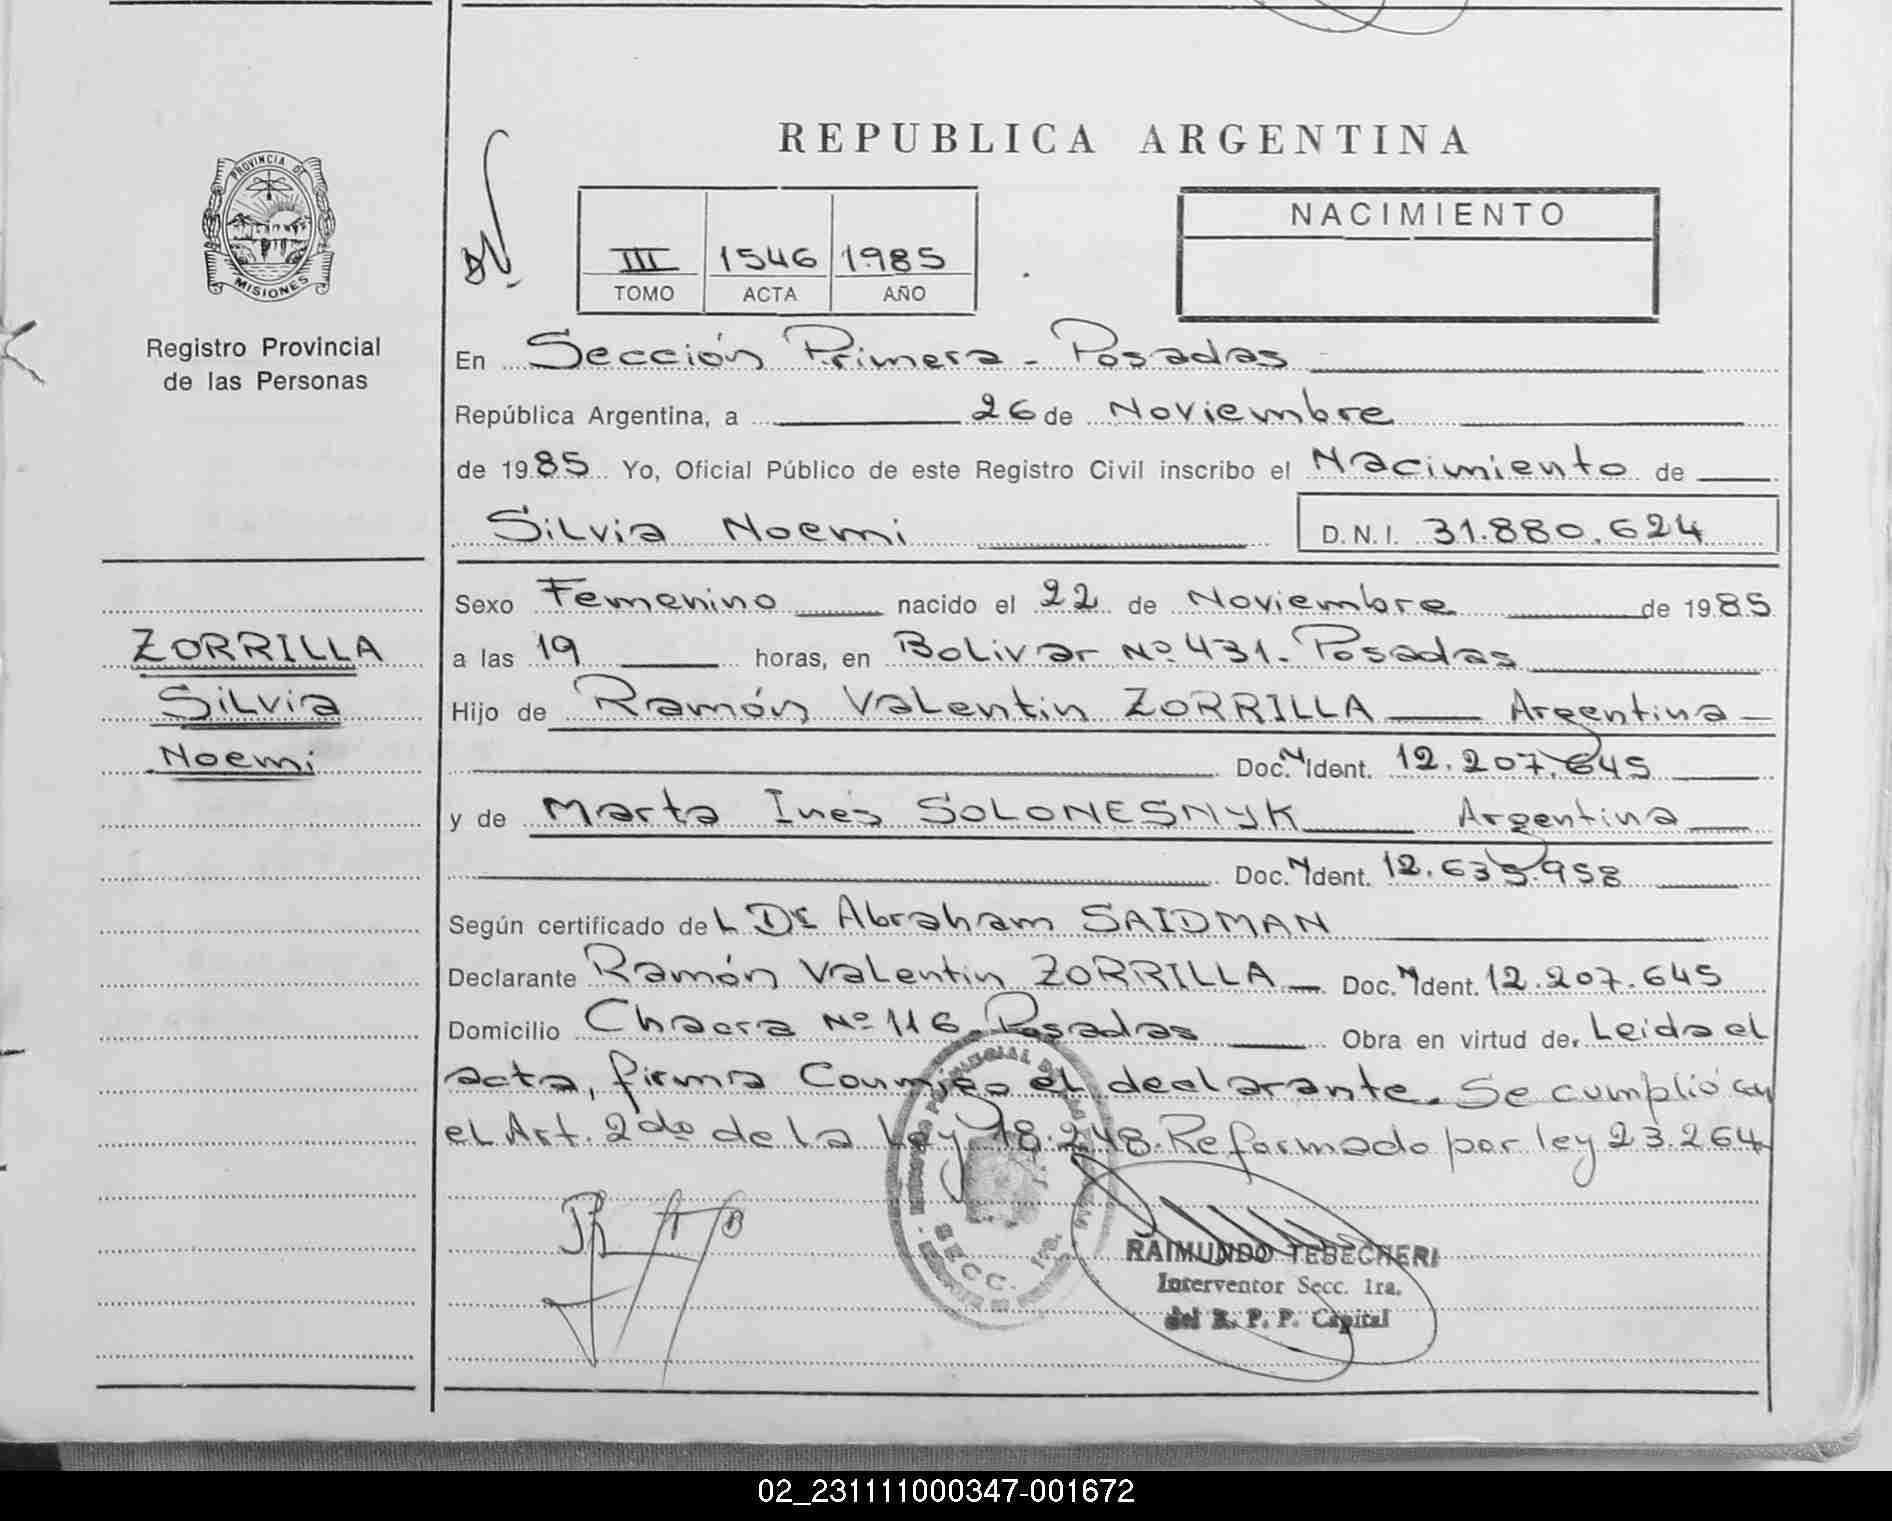 REPUBLICA ARGENTINA
PROVINCIA DE
MISIONES
Registro Provincial
de las Personas
III 1546 1985
TOMO ACTA AÑO
NACIMIENTO
En Sección Primera - Posadas
República Argentina, a 26 de Noviembre
de 1985 Yo, Oficial Público de este Registro Civil inscribo el Nacimiento de
Silvia Noemi D.N.I. 31.880.624
ZORRILLA
Silvia
Noemi
Sexo Femenino nacido el 22 de Noviembre de 1985
a las 19 horas, en Bolivar Nº 431. Posadas
Hijo de Ramón Valentin ZORRILLA Argentina
Doc. N Ident. 12.207.645
y de Marta Inés SOLONESNYK Argentina
Doc. N Ident. 12.635.958
Según certificado del Dr Abraham SAIDMAN
Declarante Ramón Valentin ZORRILLA Doc. N Ident. 12.207.645
Domicilio Chacra Nº 116. Posadas Obra en virtud de. Leida el
acta, firma Conmigo el declarante. Se cumplió con
el Art. 2do de la Ley 18.248. Reformado por ley 23.264
SECC. 1ra.
RAIMUNDO TEBECHERI
Interventor Secc. 1ra.
del R. P. P. Capital
02_231111000347-001672